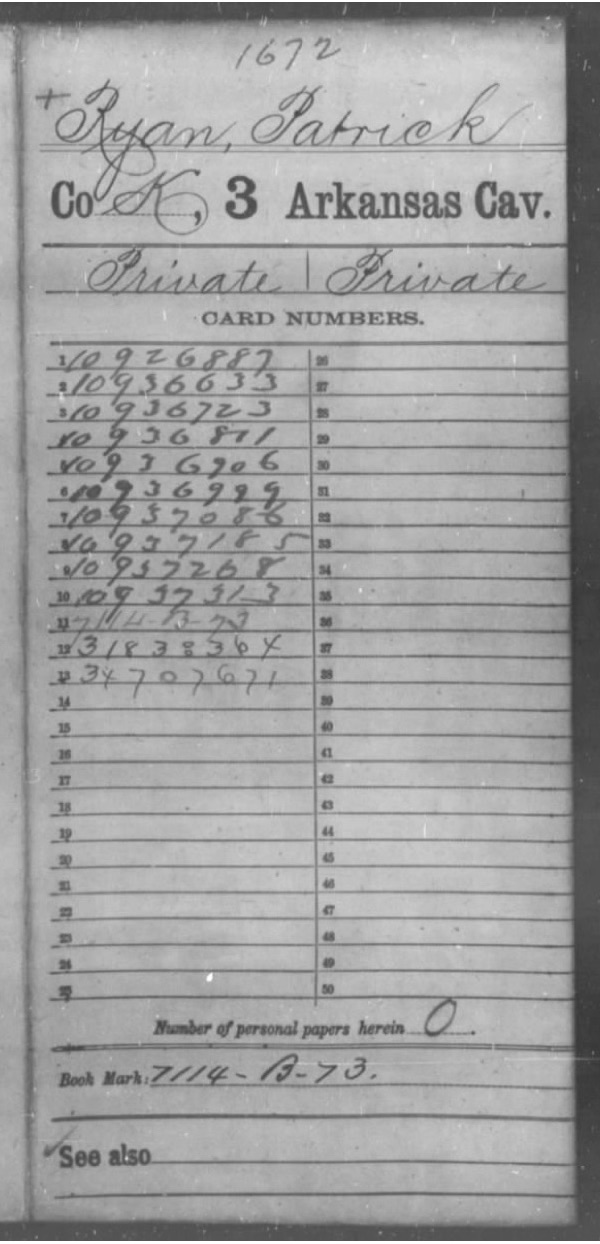 1672
+ Ryan, Patrick
Co K, 3 Arkansas Cav.
Private | Private
CARD NUMBERS.
1 10926887 26
2 10936633 27
3 10936723 28
10936811 29
10936906 30
6 10936999 31
7 10937086 32
10937185 33
9 10937268 34
10 10937313 35
11 7114-B-73 36
12 31838364 37
13 34707671 38
14 39
15 40
16 41
17 42
18 43
19 44
20 45
21 46
22 47
23 48
24 49
25 50
Number of personal papers herein 0.
Book Mark: 7114-B-73.
See also